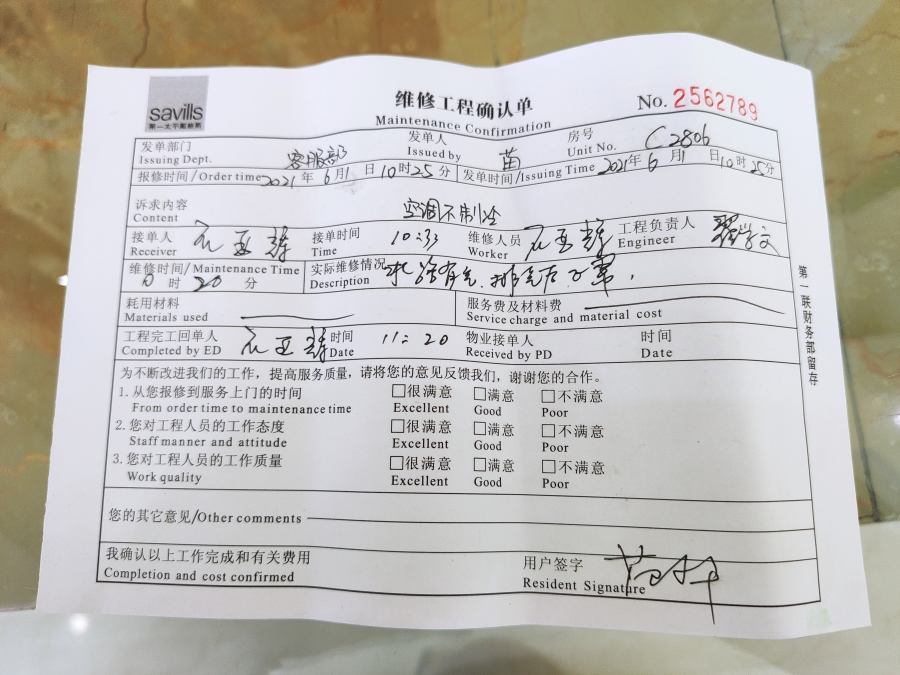 savills
第一太平戴维斯
维修工程确认单
Maintenance Confirmation
No. 2562789
发单部门 Issuing Dept. 客服部 发单人 Issued by 苗 房号 Unit No. C2806
报修时间/Order time 2021年6月1日10时25分 发单时间/Issuing Time 2021年6月1日10时25分
诉求内容 Content 空调不制冷
接单人 Receiver 接单时间 Time 10:33 维修人员 Worker 工程负责人 Engineer
维修时间/Maintenance Time 0时20分 实际维修情况 Description 水路有气.排完后正常.
耗用材料 Materials used 服务费及材料费 Service charge and material cost
工程完工回单人 Completed by ED 时间 Date 11:20 物业接单人 Received by PD 时间 Date
为不断改进我们的工作，提高服务质量，请将您的意见反馈我们，谢谢您的合作。
1.从您报修到服务上门的时间 □很满意 □满意 □不满意
From order time to maintenance time Excellent Good Poor
2.您对工程人员的工作态度 □很满意 □满意 □不满意
Staff manner and attitude Excellent Good Poor
3.您对工程人员的工作质量 □很满意 □满意 □不满意
Work quality Excellent Good Poor
您的其它意见/Other comments
我确认以上工作完成和有关费用 用户签字
Completion and cost confirmed Resident Signature
第一联财务部留存